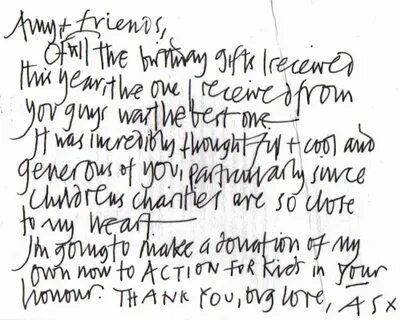 Amy + friends,
Of all the birthday gifts I received
this year, the one I received from
you guys was the best one.
It was incredibly thoughtful + cool and
generous of you, particularly since
childrens charities are so close
to my heart
I'm going to make a donation of my
own now to ACTION FOR KIDS in your
honour. THANK YOU, big love, A S X